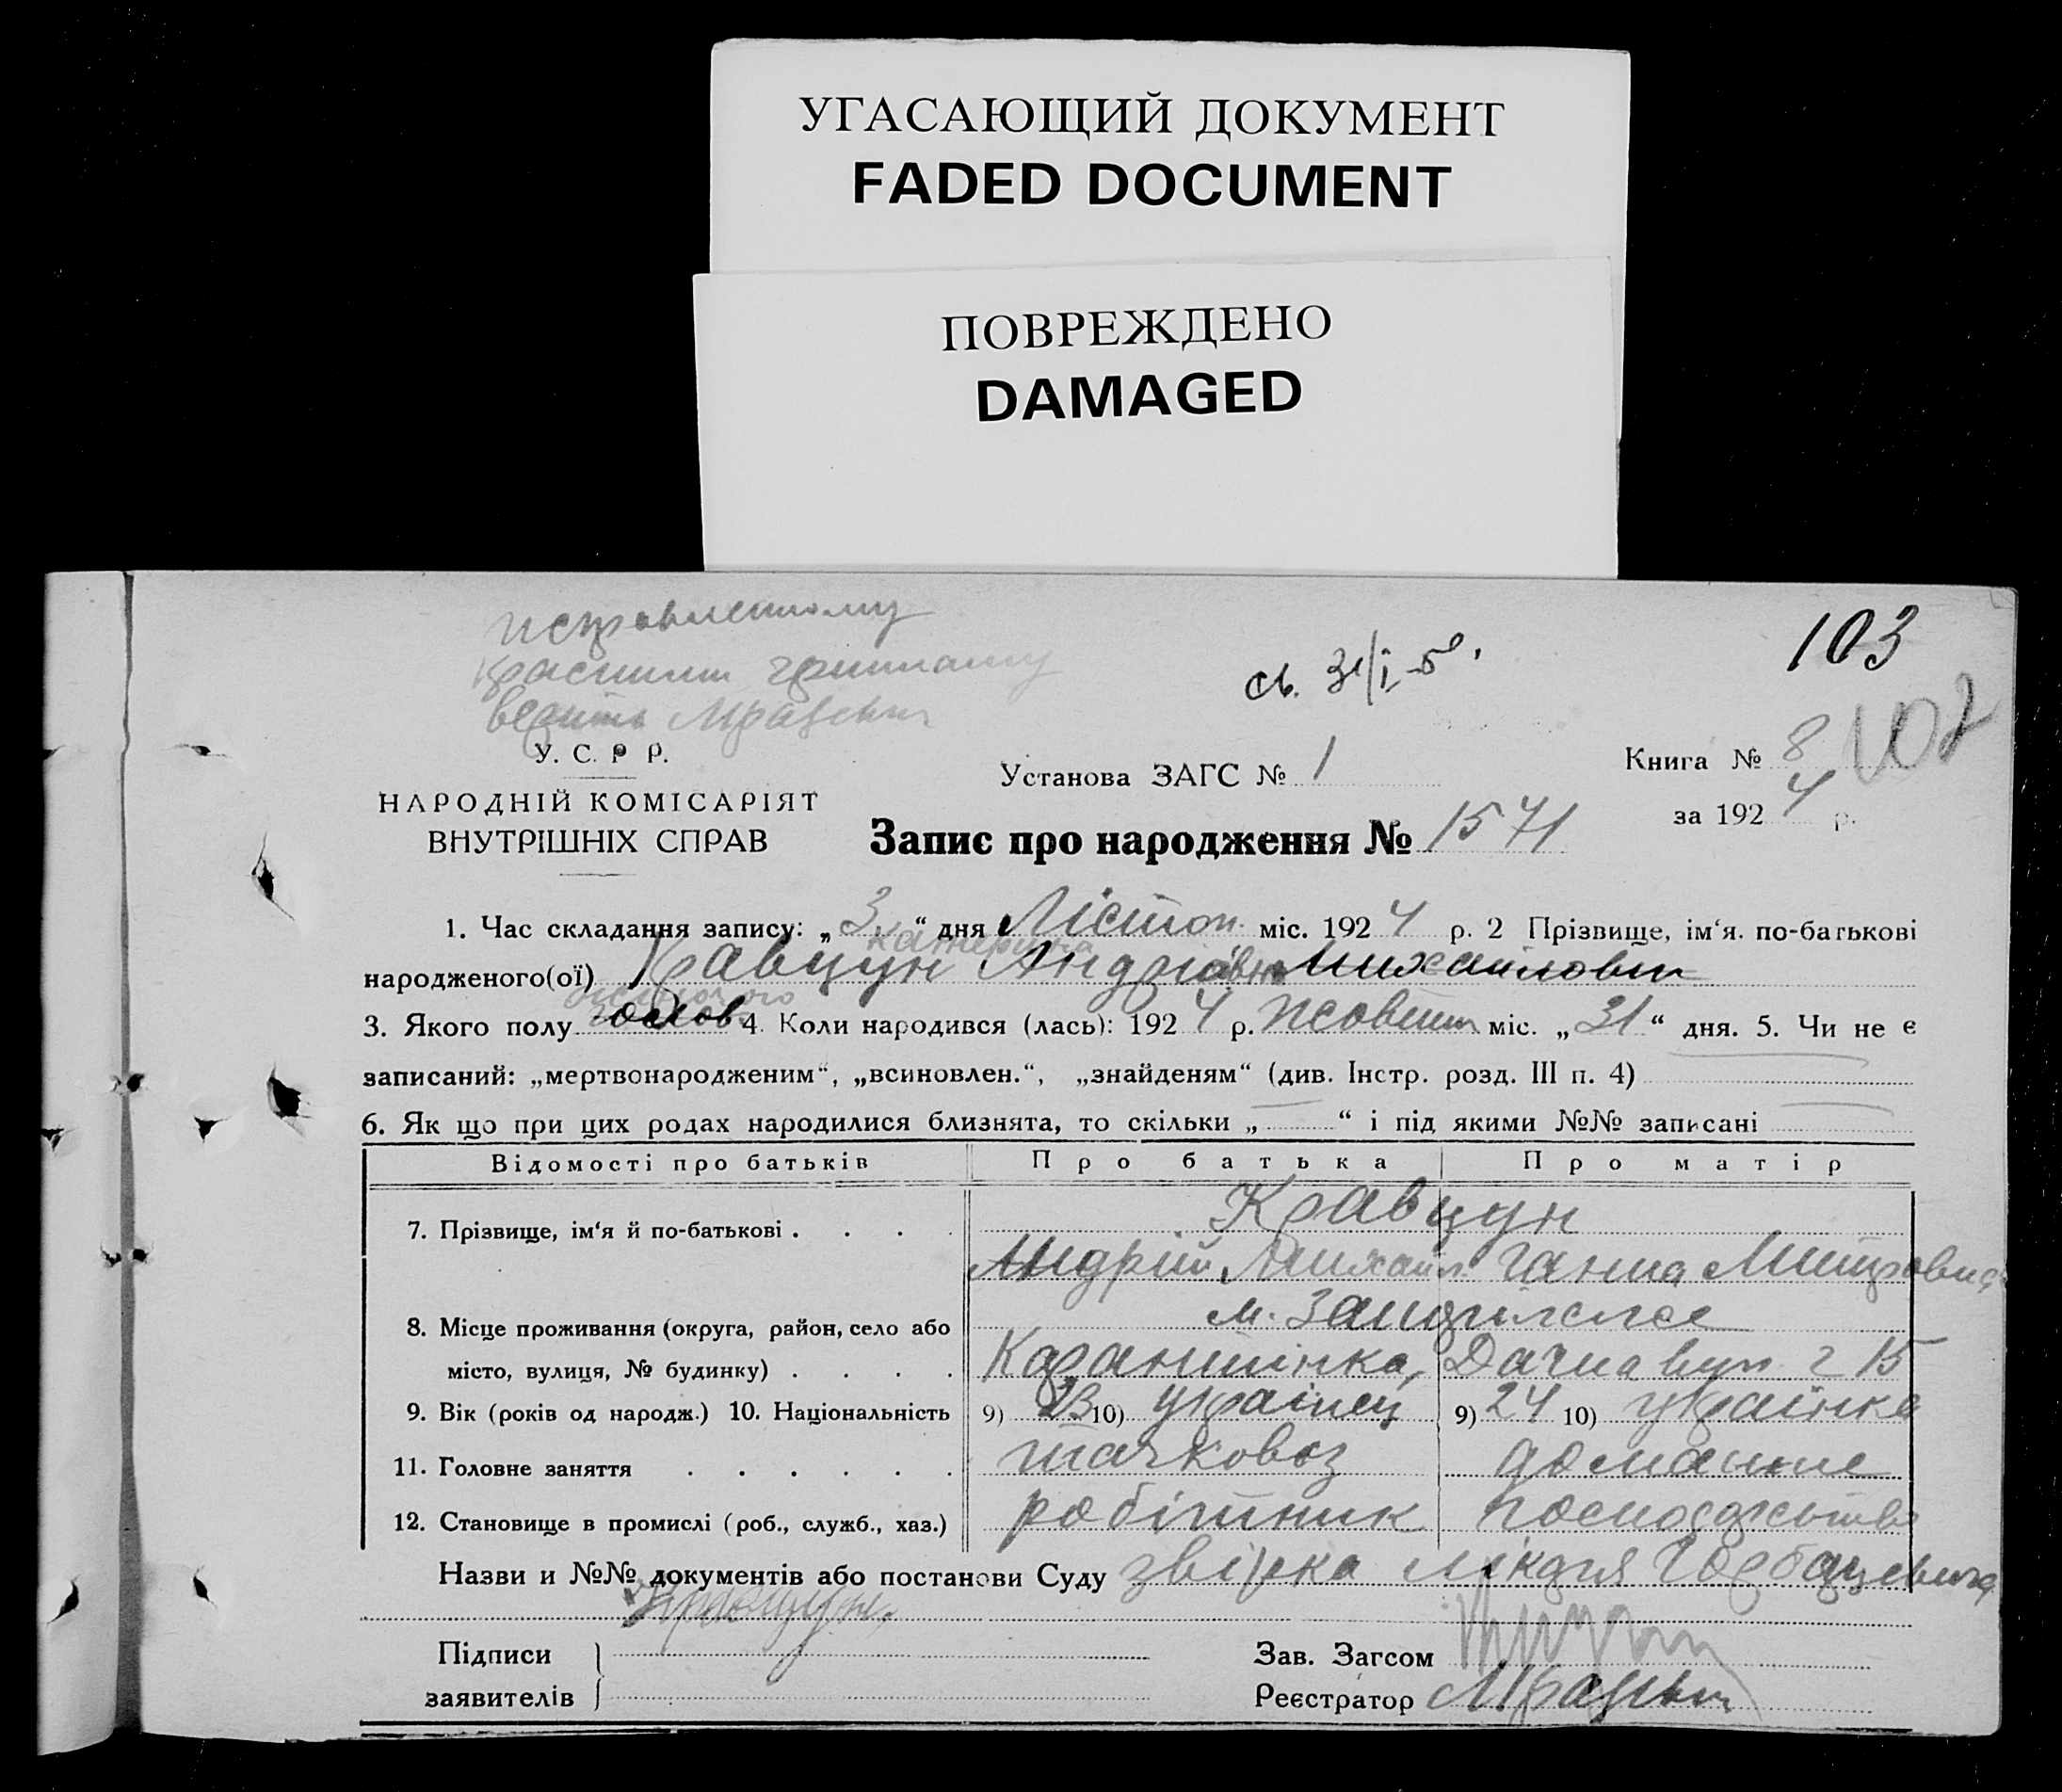 УГАСАЮЩИЙ ДОКУМЕНТ
FADED DOCUMENT
ПОВРЕЖДЕНО
DAMAGED
исправленному
красными чернилами
верить Мразевич
св. 31/I-50.
103
102
У. С. Р Р.
НАРОДНІЙ КОМІСАРІЯТ
ВНУТРІШНІХ СПРАВ
Установа ЗАГС № 1
Книга № 8
за 1924 р.
Запис про народження № 1571
1. Час складання запису: „3“ дня Лістоп. міс. 1924 р. 2 Прізвище, ім‘я. по-батькові
Катерина
народженого(ої) Кравцун Андріївна Михайлович
жіночого
3. Якого полу чолов. 4. Коли народився (лась): 1924 р. Жовтня міс. „31“ дня. 5. Чи не є
записаний: „мертвонародженим“, „всиновлен.“, „знайденям“ (див. Інстр. розд. III п. 4)
6. Як що при цих родах народилися близнята, то скільки „ “ і під якими №№ записані
Відомості про батьків Про батька Про матір
7. Прізвище, ім‘я й по-батькові . . . . Кравцун
Андрій Михайл. Ганна Митровна
8. Місце проживання (округа, район, село або
місто, вулиця, № будинку) . . . . Карантинка, Дачна вул. 15
9. Вік (років од народж.) 10. Національність 9) 23 10) українец 9) 24 10) українка
11. Головне заняття . . . . . . тачковоз домашнє
12. Становище в промислі (роб., служб., хаз.) робітник господарство
Назви и №№ документів або постанови Суду звірка лікаря Горбацевича
Кравцун.
Підписи
заявителів
Зав. Загсом
Реєстратор Мразевич